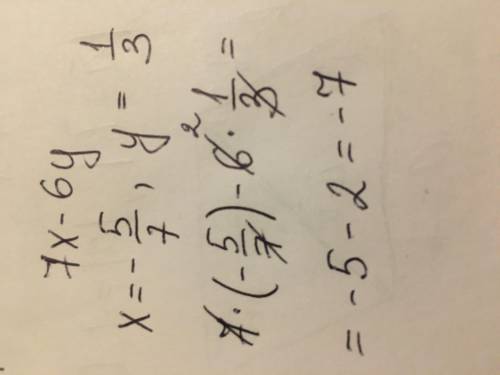 7x - 6y
x = - 5/7 , y = 1/3
7 · (- 5/7) - 6 2 · 1/3 =
= - 5 - 2 = - 7